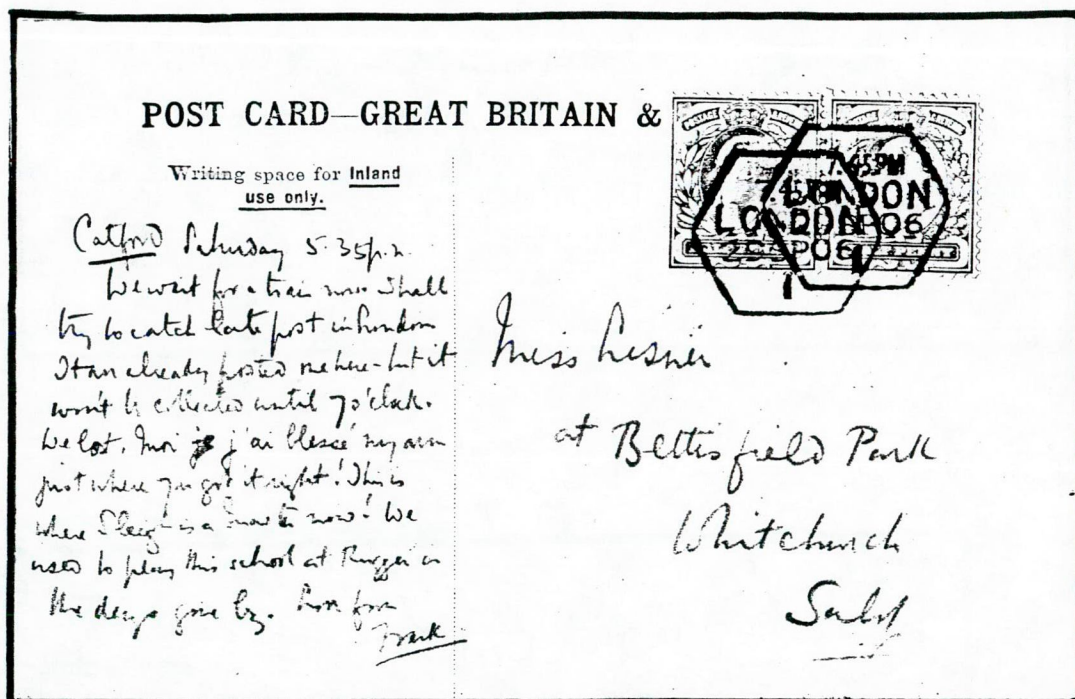 POST CARD—GREAT BRITAIN &
Writing space for Inland
use only.
7.45PM
LONDON
LONDON
SP06
Catford Saturday 5.35p.m.
We wait for a train now. Shall
try to catch late post in London
already posted one here - but it
won't be collected until 7 o'clock.
We lost. Moi j'ai blessé my arm
just where you got it right! This is
where is a now! We
used to play this school at Rugger in
the days gone by. from
Frank
Miss
at Bettisfield Park
Whitchurch
Salop